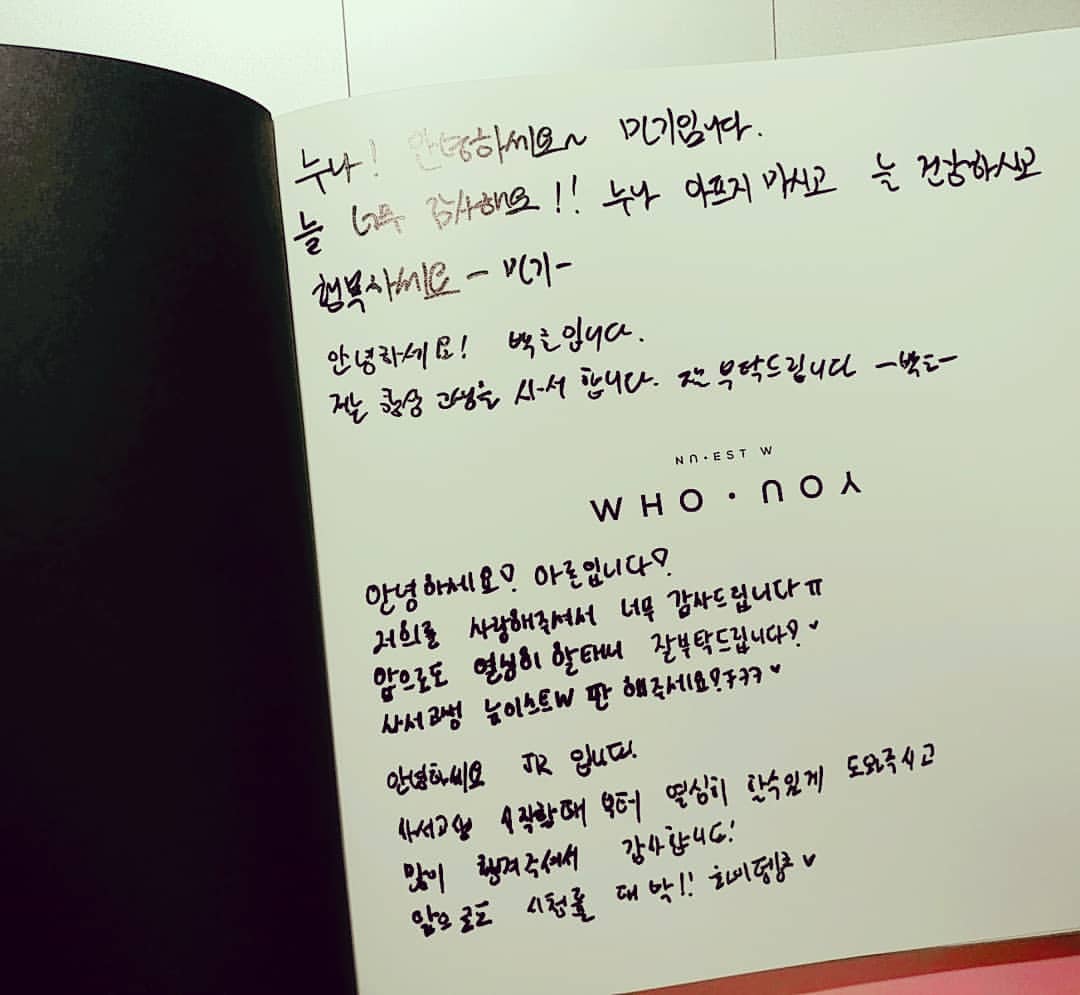 누나! 안녕하세요~ 민기입니다.
늘 너무 감사해요!! 누나 아프지 마시고 늘 건강하시고
행복하세요 - 민기 -
안녕하세요! 백호입니다.
저는 항상 고생을 사서 합니다. 잘 부탁드립니다 -백호-
NU·EST W
WHO·YOU
안녕하세요♡ 아론입니다♡
저희를 사랑해주셔서 너무 감사드립니다ㅠ
앞으로도 열심히 할테니 잘부탁드립니다♡ ♥
사서고생 뉴이스트W 편 해주세요♡ㅋㅋㅋ ♥
안녕하세요 JR 입니다.
사서고생 시작할때 부터 열심히 할수있게 도와주시고
많이 챙겨주셔서 감사합니다!
앞으로도 시청률 대박!! 화이팅 ♥